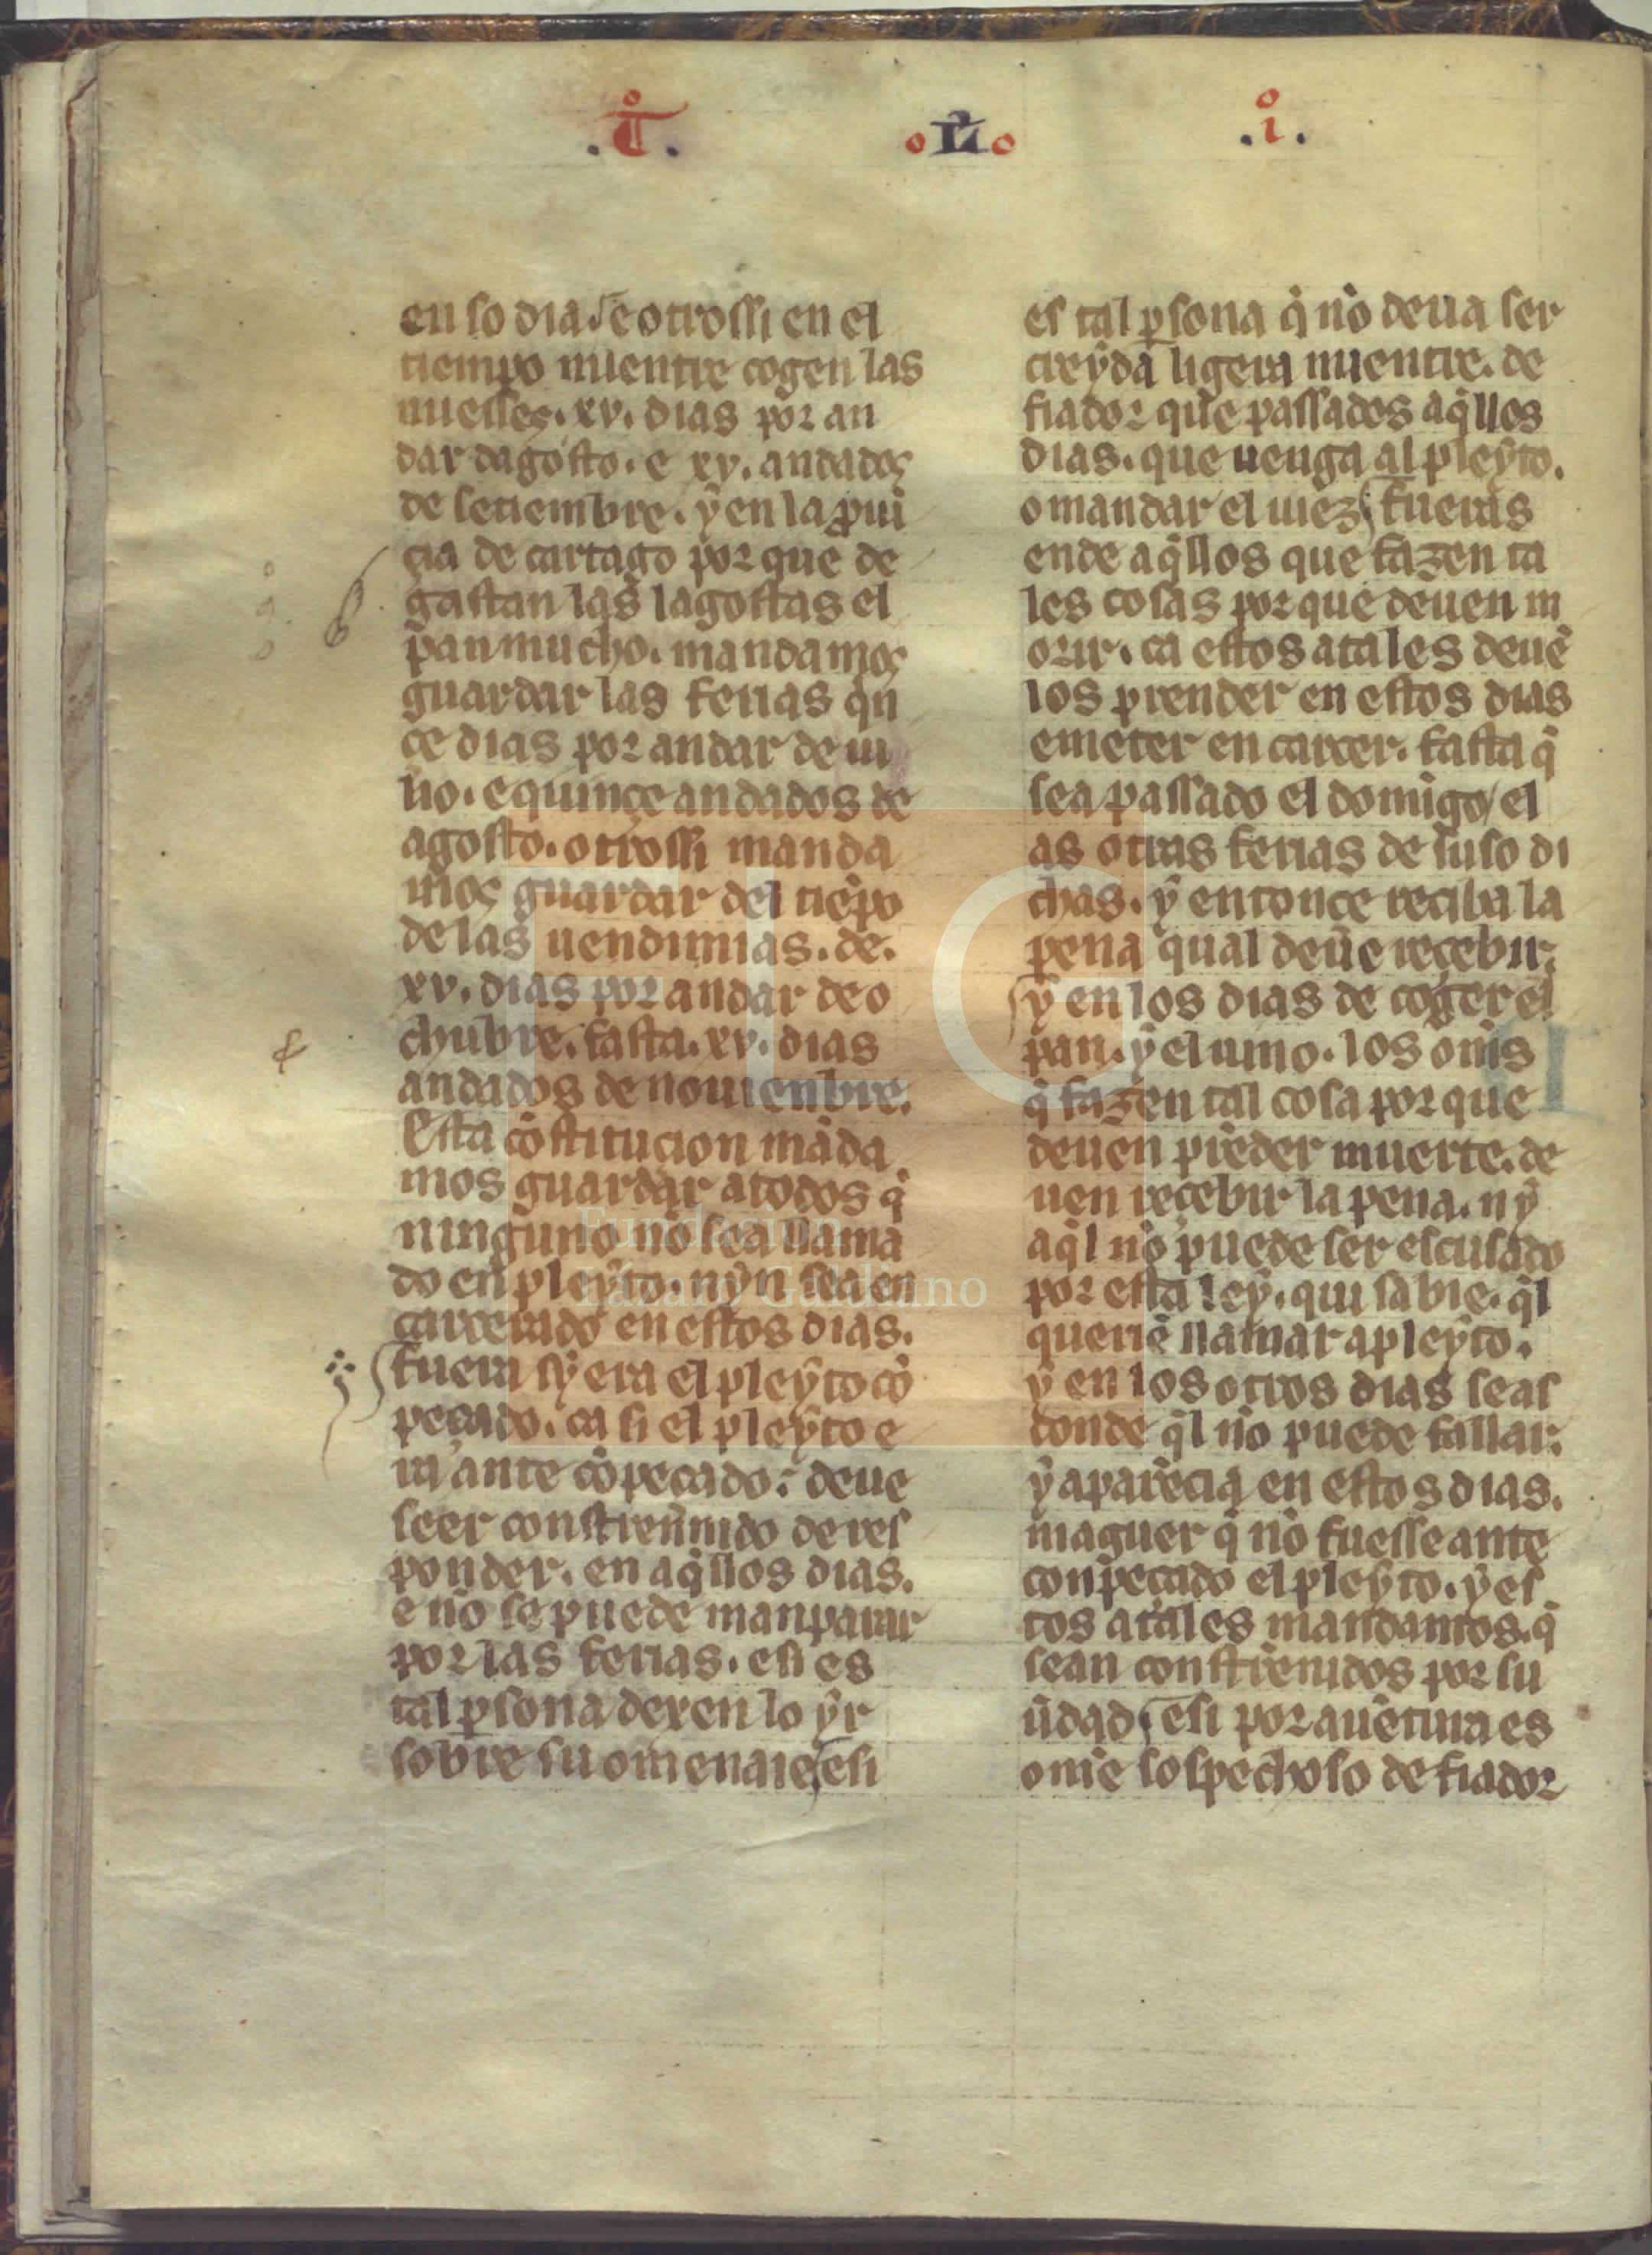 .T. .II. .i.
en so dia. e otrossi en el
tiempo mientre cogen las
miesses. xv. dias por an
dar dagosto. e xv. andados
de setiembre. ẏ en la ꝓui
çia de cartago por que de
gastan las lagostas el
pan mucho. mandamos
guardar las ferias qin
ce dias por andar de iu
nio. e quinçe andados de
agosto. otrossi manda
mos guardar del tiẽpo
de las uendimias. de.
xv. dias por andar de o
chubre. fasta. xv. dias
andados de nouienbre.
Esta cõstitucion mãda
mos guardar a todos q̃
ninguno nõ sea llama
do en pleẏto. nẏn sea en
carcerado en estos dias.
fuera sẏ era el pleẏto cõ
peçado. ca si el pleẏto e
ra ante cõpeçado. deue
seer constrennido de res
ponder. en aq̃llos dias.
e nõ se puede manparar
por las ferias. e si es
tal ꝑsona dexen lo ẏr
sobre su omenaie e si
es tal ꝑsona q̃ nõ deua ser
creẏda ligera mientre. de
fiador que passados aq̃llos
dias. que uenga al pleẏto.
o mandar el iuez fueras
ende aq̃llos que fazen ta
les cosas por que deuen m
orir. ca estos atales deuẽ
los prender en estos dias
e meter en carcer. fasta q̃
sea passado el domĩgo/ e l
as otras ferias de suso di
chas. ẏ entonçe reciba la
pena qual deue reçebir.
ẏ en los dias de coger el
pan. ẏ el uino. los omẽs
q̃ fazen tal cosa por que
deuen prẽder muerte. de
uen reçebir la pena. nẏ
aq̃l nõ puede ser escusado
por esta leẏ. qui sabie. q̃l
querien llamar a pleẏto.
ẏ en los otros dias seas
conde q̃l nõ puede fallar.
ẏ apareçia en estos dias.
maguer q̃ nõ fuesse ante
conpeçado el pleẏto. ẏ es
tos atales mandamos. q̃
sean constrenidos por su
ũdad e si por auẽtura es
ome sospechoso de fiador
Fundación
Lázaro Galdiano